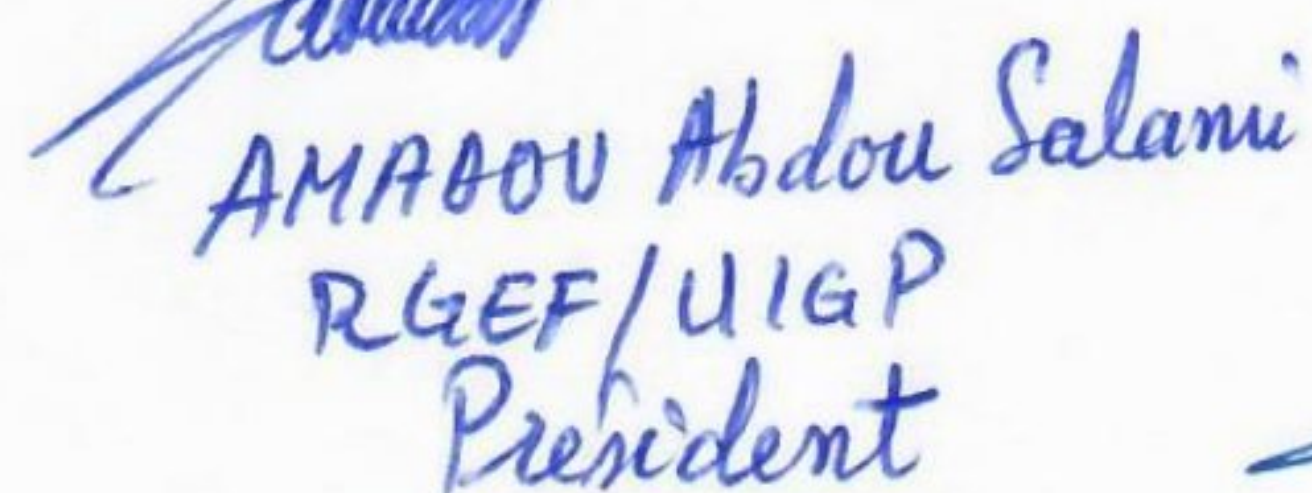 AMADOU Abdou Salami
RGEF/UIGP
President